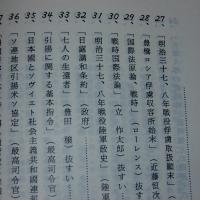 27.「明治三十七、八年戦役俘虜取扱顛末」
28.「豊橋ロシア俘虜収容所始末」（近藤恒次
29.「国際法原論、戦時」（ローレンス）抜すい
30.「戦時国際法論」（立 作太郎）抜すい
31.「明治三十七、八年戦役陸軍政史」（陸軍
32.「日露講和条約」（政府）
33.「七人の生還者」（豊田 穣）抜すい
34.「引揚に関する基本指令」（最高司令官）
35.「日本國とソヴィエト社会主義共和國連邦
36.「ソ連地区引揚米ソ協定」（最高司令官、